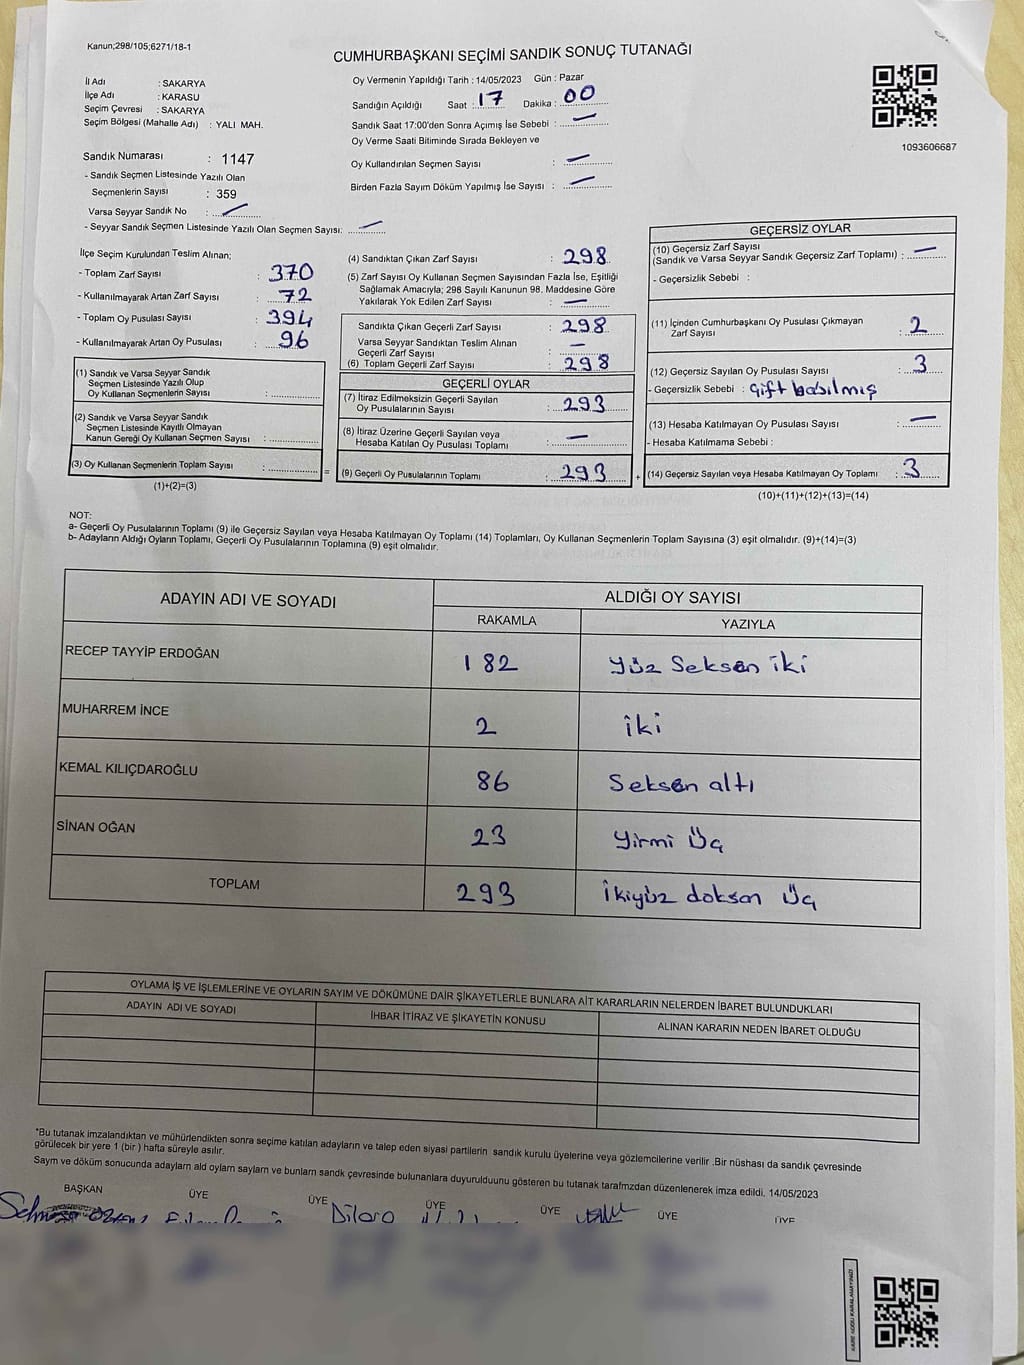 Kanun;298/105;6271/18-1
CUMHURBAŞKANI SEÇİMİ SANDIK SONUÇ TUTANAĞI
İl Adı : SAKARYA
İlçe Adı : KARASU
Seçim Çevresi : SAKARYA
Seçim Bölgesi (Mahalle Adı) : YALI MAH.
Sandık Numarası : 1147
- Sandık Seçmen Listesinde Yazılı Olan
Seçmenlerin Sayısı : 359
Varsa Seyyar Sandık No : —
- Seyyar Sandık Seçmen Listesinde Yazılı Olan Seçmen Sayısı: —
Oy Vermenin Yapıldığı Tarih : 14/05/2023 Gün : Pazar
Sandığın Açıldığı Saat : 17 Dakika : 00
Sandık Saat 17:00'den Sonra Açımış İse Sebebi : —
Oy Verme Saati Bitiminde Sırada Bekleyen ve
Oy Kullandırılan Seçmen Sayısı : —
Birden Fazla Sayım Döküm Yapılmış İse Sayısı : —
1093606687
İlçe Seçim Kurulundan Teslim Alınan;
- Toplam Zarf Sayısı : 370
- Kullanılmayarak Artan Zarf Sayısı : 72
- Toplam Oy Pusulası Sayısı : 394
- Kullanılmayarak Artan Oy Pusulası : 96
(1) Sandık ve Varsa Seyyar Sandık
Seçmen Listesinde Yazılı Olup
Oy Kullanan Seçmenlerin Sayısı :
(2) Sandık ve Varsa Seyyar Sandık
Seçmen Listesinde Kayıtlı Olmayan
Kanun Gereği Oy Kullanan Seçmen Sayısı :
(3) Oy Kullanan Seçmenlerin Toplam Sayısı :
(1)+(2)=(3)
(4) Sandıktan Çıkan Zarf Sayısı : 298
(5) Zarf Sayısı Oy Kullanan Seçmen Sayısından Fazla İse, Eşitliği
Sağlamak Amacıyla; 298 Sayılı Kanunun 98. Maddesine Göre
Yakılarak Yok Edilen Zarf Sayısı : —
Sandıkta Çıkan Geçerli Zarf Sayısı : 298
Varsa Seyyar Sandıktan Teslim Alınan
Geçerli Zarf Sayısı : —
(6) Toplam Geçerli Zarf Sayısı : 298
GEÇERLİ OYLAR
(7) İtiraz Edilmeksizin Geçerli Sayılan
Oy Pusulalarının Sayısı : 293
(8) İtiraz Üzerine Geçerli Sayılan veya
Hesaba Katılan Oy Pusulası Toplamı : —
= (9) Geçerli Oy Pusulalarının Toplamı : 293 +
GEÇERSİZ OYLAR
(10) Geçersiz Zarf Sayısı
(Sandık ve Varsa Seyyar Sandık Geçersiz Zarf Toplamı) : —
- Geçersizlik Sebebi :
(11) İçinden Cumhurbaşkanı Oy Pusulası Çıkmayan
Zarf Sayısı : 2
(12) Geçersiz Sayılan Oy Pusulası Sayısı : 3
- Geçersizlik Sebebi : Çift basılmış
(13) Hesaba Katılmayan Oy Pusulası Sayısı : —
- Hesaba Katılmama Sebebi :
(14) Geçersiz Sayılan veya Hesaba Katılmayan Oy Toplamı : 3
(10)+(11)+(12)+(13)=(14)
NOT:
a- Geçerli Oy Pusulalarının Toplamı (9) ile Geçersiz Sayılan veya Hesaba Katılmayan Oy Toplamı (14) Toplamları, Oy Kullanan Seçmenlerin Toplam Sayısına (3) eşit olmalıdır. (9)+(14)=(3)
b- Adayların Aldığı Oyların Toplamı, Geçerli Oy Pusulalarının Toplamına (9) eşit olmalıdır.
ADAYIN ADI VE SOYADI ALDIĞI OY SAYISI
RAKAMLA YAZIYLA
RECEP TAYYİP ERDOĞAN 182 Yüz Seksen iki
MUHARREM İNCE 2 iki
KEMAL KILIÇDAROĞLU 86 Seksen altı
SİNAN OĞAN 23 Yirmi Üç
TOPLAM 293 İkiyüz doksan Üç
OYLAMA İŞ VE İŞLEMLERİNE VE OYLARIN SAYIM VE DÖKÜMÜNE DAİR ŞİKAYETLERLE BUNLARA AİT KARARLARIN NELERDEN İBARET BULUNDUKLARI
ADAYIN ADI VE SOYADI İHBAR İTİRAZ VE ŞİKAYETİN KONUSU ALINAN KARARIN NEDEN İBARET OLDUĞU
*Bu tutanak imzalandıktan ve mühürlendikten sonra seçime katılan adayların ve talep eden siyasi partilerin sandık kurulu üyelerine veya gözlemcilerine verilir .Bir nüshası da sandık çevresinde
görülecek bir yere 1 (bir ) hafta süreyle asılır.
Sayım ve döküm sonucunda adaylarn ald oylarn saylarn ve bunlarn sandk çevresinde bulunanlara duyurulduunu gösteren bu tutanak tarafmzdan düzenlenerek imza edildi. 14/05/2023
BAŞKAN ÜYE ÜYE ÜYE ÜYE ÜYE ÜYE
Dilara